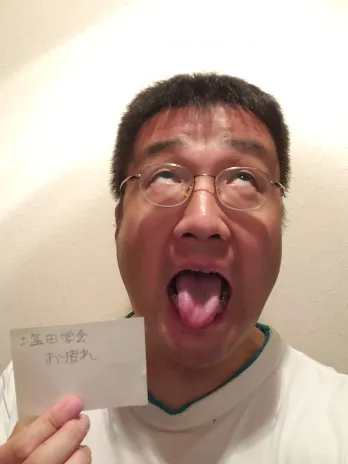 塩田学会
お疲れ